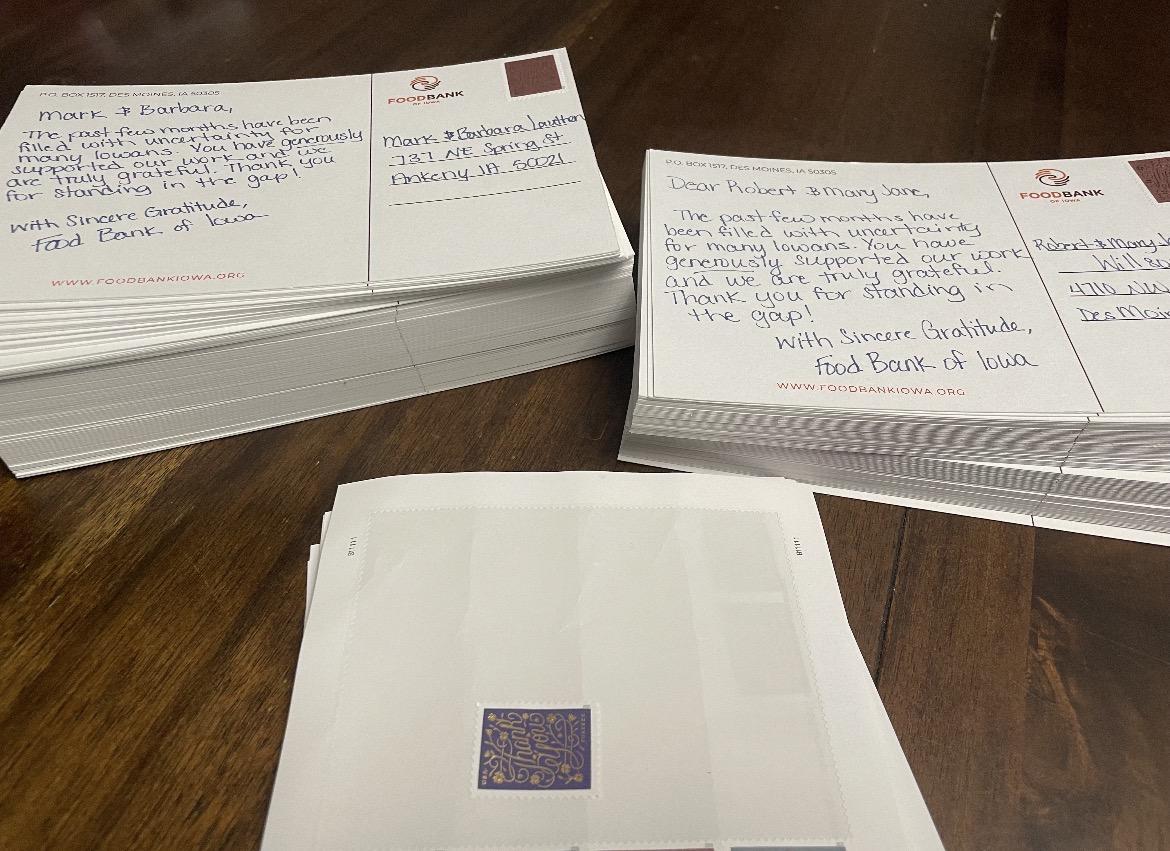 P.O. BOX 1517, DES MOINES, IA 50305
Mark & Barbara,
The past few months have been
filled with uncertainty for
many Iowans. You have generously
supported our work and we
are truly grateful. Thank you
for standing in the gap!
With Sincere Gratitude,
Food Bank of Iowa
WWW.FOODBANKIOWA.ORG
FOODBANK
OF IOWA
Mark & Barbara
737 NE Spring St
Ankeny IA 50021
P.O. BOX 1517, DES MOINES, IA 50305
Dear Robert & Mary Jane,
The past few months have
been filled with uncertainty
for many Iowans. You have
generously supported our work
and we are truly grateful.
Thank you for standing in
the gap!
With Sincere Gratitude,
Food Bank of Iowa
WWW.FOODBANKIOWA.ORG
FOODBANK
OF IOWA
Robert & Mary J
Wills
4710 NW
Des Moin
B1111
B1111
Thank
you